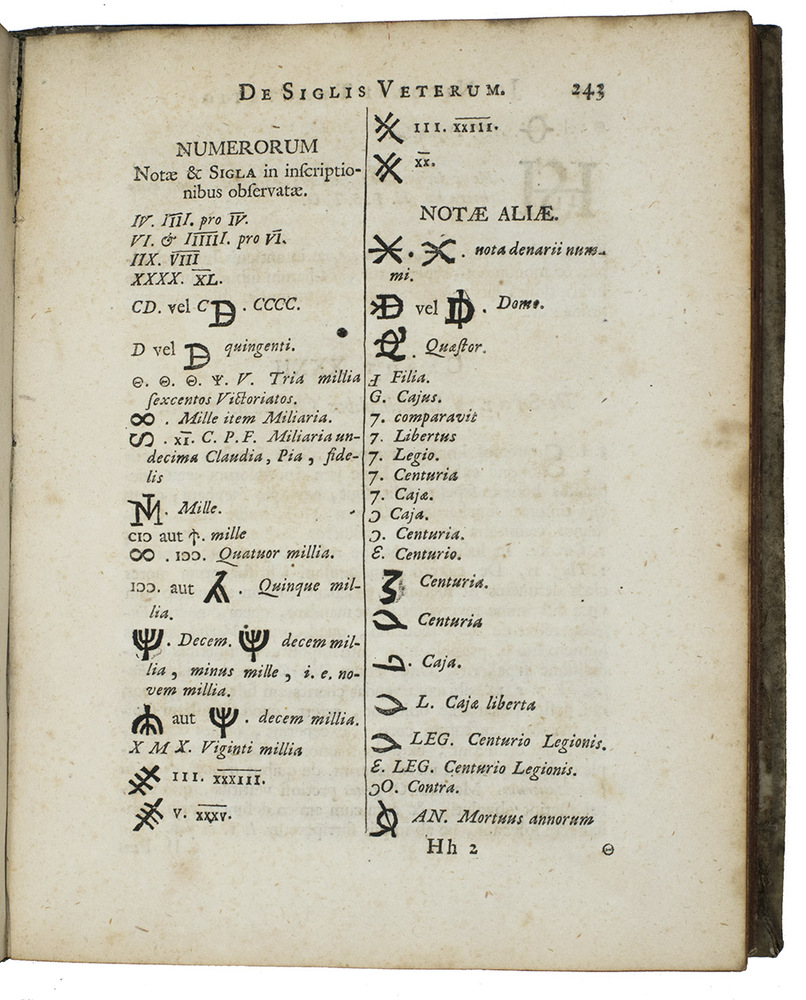 DE SIGLIS VETERUM. 243
NUMERORUM
Notæ & SIGLA in inſcriptio-
nibus obſervatæ.
IV. I̅I̅I̅I. pro I̅V̅.
VI. & I̅I̅I̅I̅I̅I. pro V̅I̅.
IIX. V̅I̅I̅I̅
XXXX. X̅L̅.
CD. vel CD. CCCC.
D vel D quingenti.
Ѳ. Ѳ. Ѳ. V. Tria millia
ſexcentos Victoriatos.
∞ . Mille item Miliaria.
. X̅I̅. C. P. F. Miliaria un-
decima Claudia, Pia, fide-
lis
. Mille.
CIↃ aut . mille
∞ . IↃↃ. Quatuor millia.
IↃↃ. aut . Quinque mil-
lia.
. Decem. decem mil-
lia, minus mille, i. e. no-
vem millia.
aut . decem millia.
X M X. Viginti millia
III. X̅X̅X̅I̅I̅I̅.
V. X̅X̅X̅V̅.
III. X̅X̅I̅I̅I̅.
X̅X̅.
NOTÆ ALIÆ.
. . nota denarii num-
mi.
vel . Domo.
. Quæſtor.
Ⅎ Filia.
G. Cajus.
7. comparavit
7. Libertus
7. Legio.
7. Centuria
7. Cajæ.
Ↄ Caja.
Ↄ. Centuria.
Ɛ. Centurio.
Centuria.
Centuria
. Caja.
L. Cajæ liberta
LEG. Centurio Legionis.
Ɛ. LEG. Centurio Legionis.
ↃO. Contra.
AN. Mortuus annorum
Hh 2 Ѳ